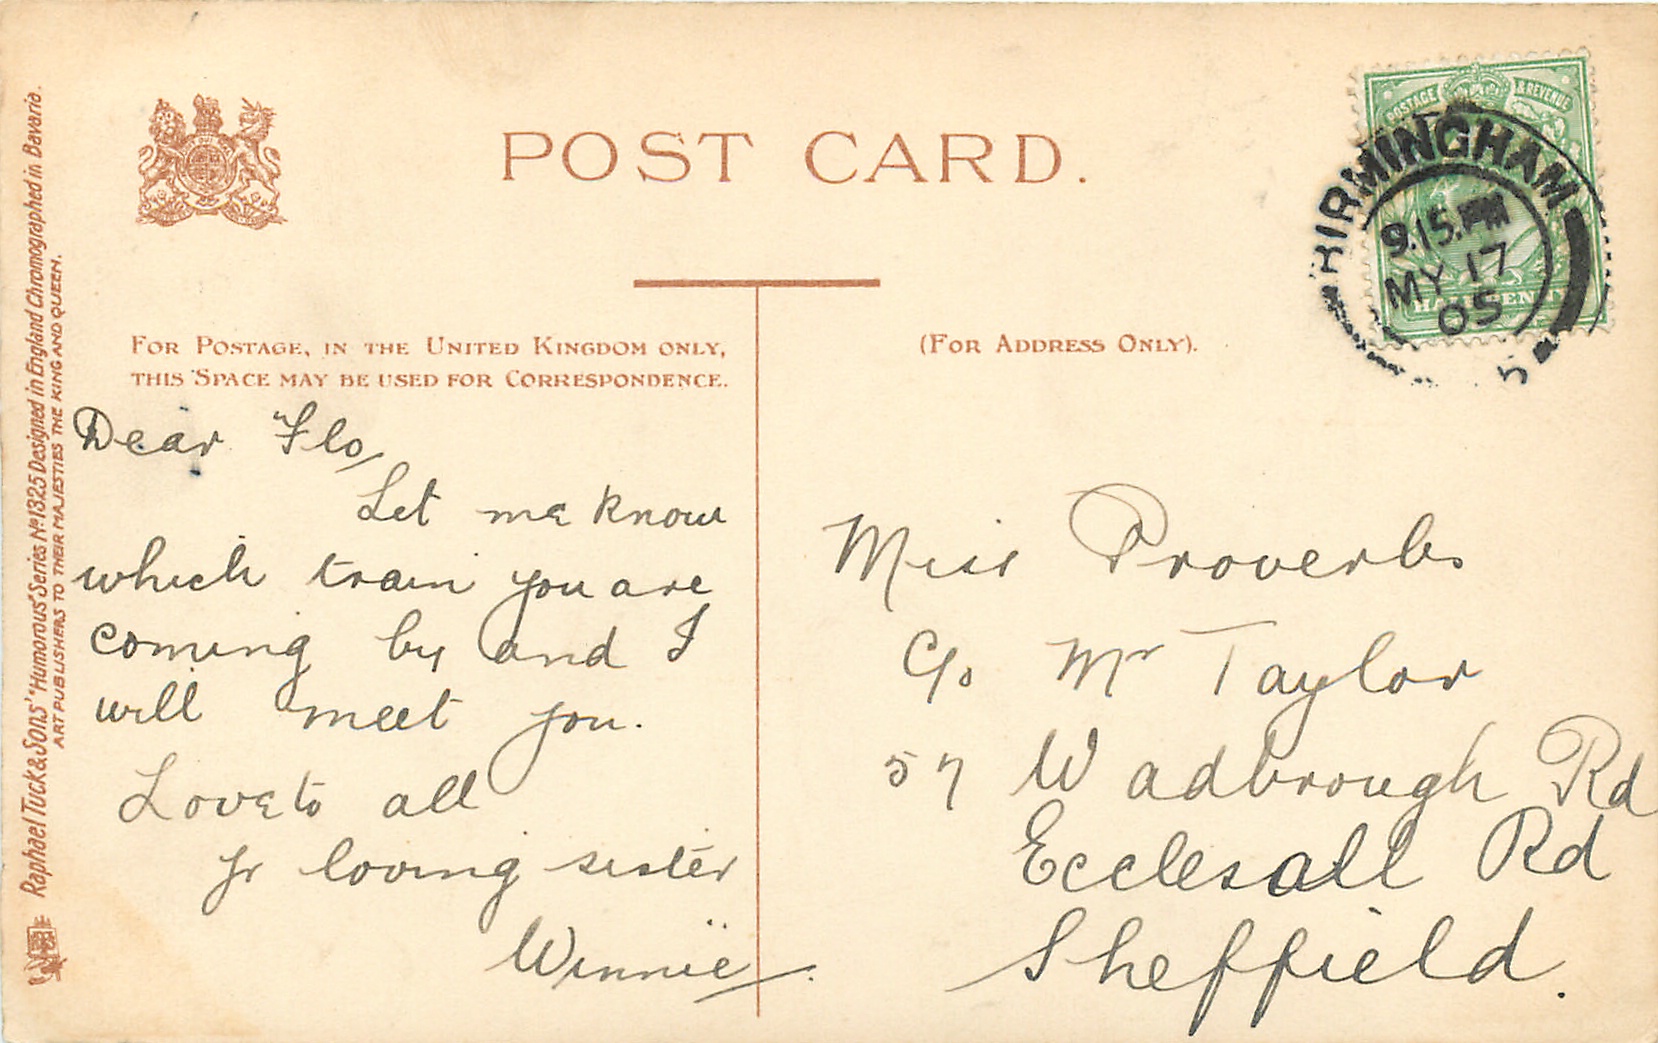 POST CARD.
FOR POSTAGE, IN THE UNITED KINGDOM ONLY,
THIS SPACE MAY BE USED FOR CORRESPONDENCE.
(FOR ADDRESS ONLY).
Raphael Tuck & Sons' "Humorous" Series No. 1325 Designed in England Chromographed in Bavaria.
ART PUBLISHERS TO THEIR MAJESTIES THE KING AND QUEEN.
POSTAGE & REVENUE
HALFPENNY
BIRMINGHAM
9.15.PM
MY 17
05
5
Dear Flo,
Let me know
which train you are
coming by and I
will meet you.
Love to all
Yr loving sister
Winnie.
Miss Proverbs
C/o Mr Taylor
57 Wadbrough Rd
Ecclesall Rd
Sheffield.